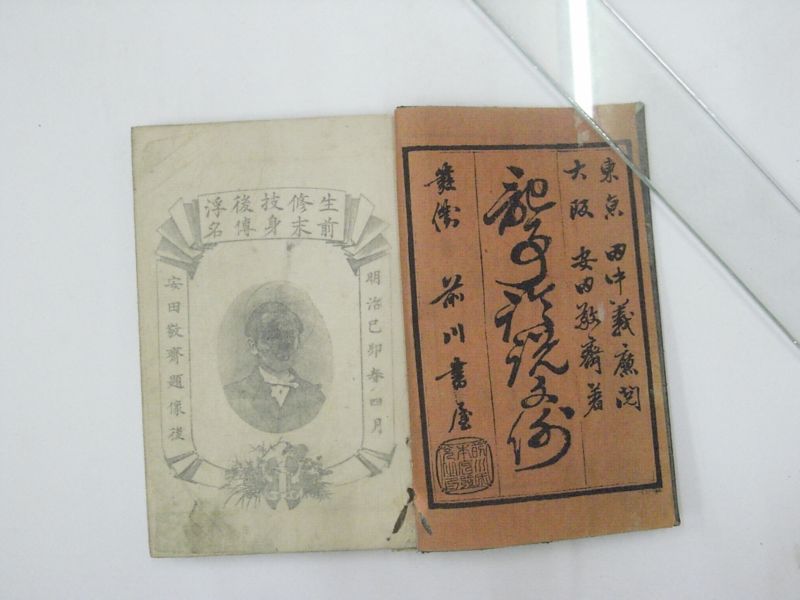 東京 田中義廉閲
大阪 安田敬齋著
記事論説文例
發兌 前川書屋
生前修末技身後傳浮名
明治己卯春四月
安田敬齋題像後